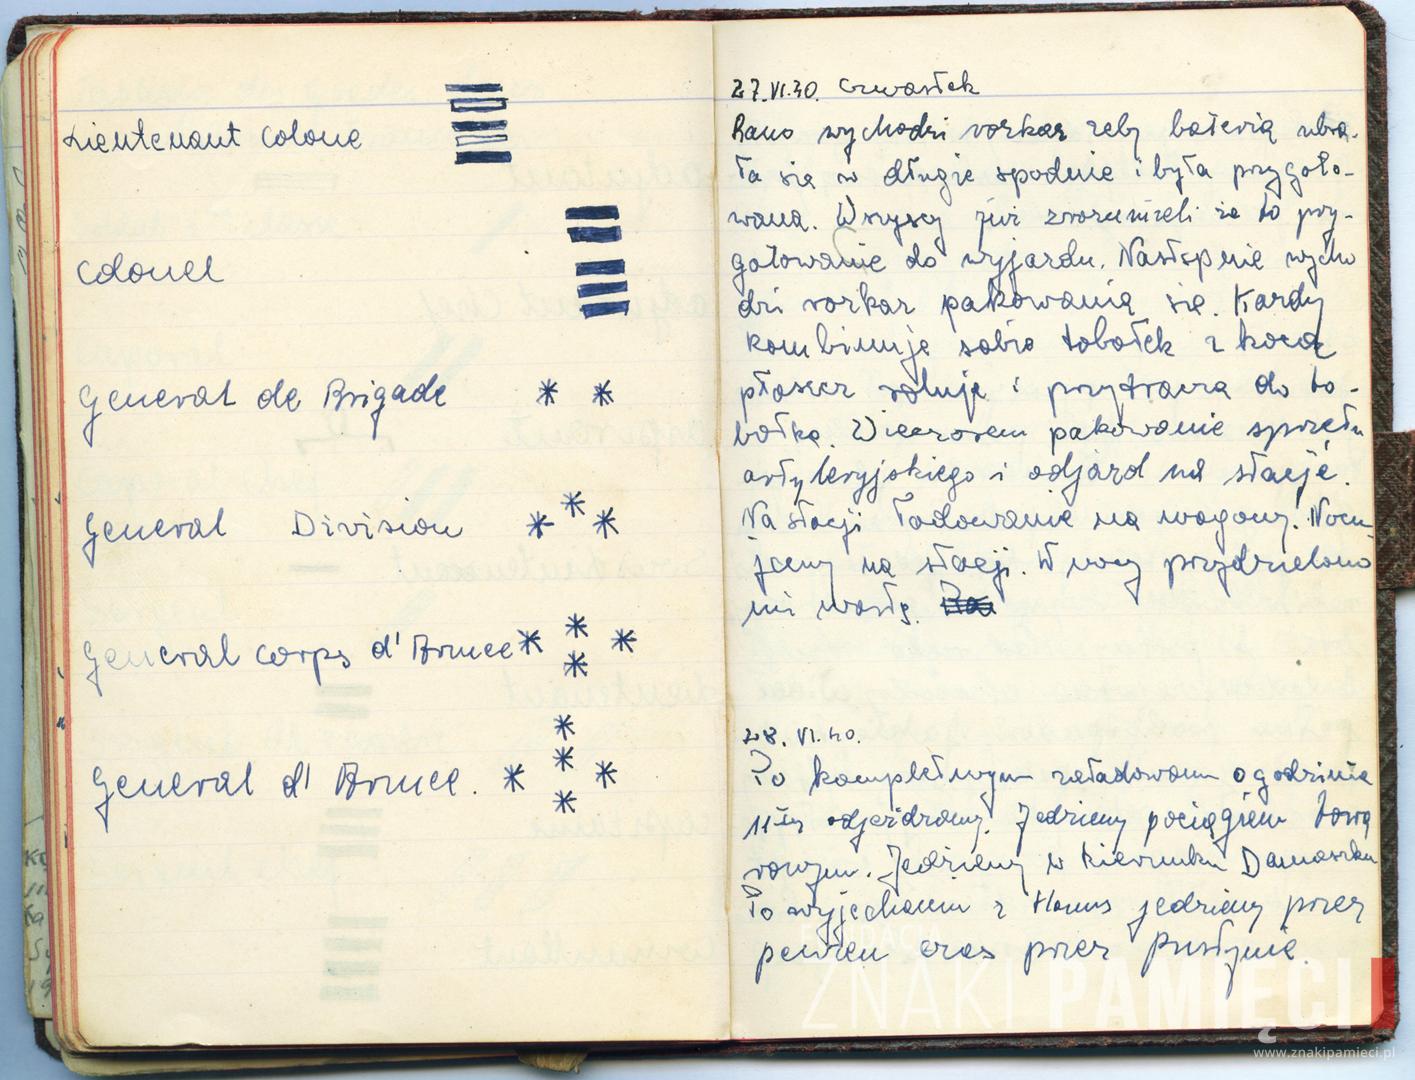 Lieutenant Colone
Colonel
General de Brigade * *
General Division * * *
General corps d'Armee * * * *
General d'Armee. * * * * *
27.VI.40. Czwartek
Rano wychodzi rozkaz żeby baterią ubra-
ła się w długie spodnie i była przygoto-
wana. Wszyscy już zrozumieli że to przy-
gotowanie do wyjazdu. Następnie wycho
dzi rozkaz pakowania się. Każdy
kombinuje sobie tobołek z koca
płaszcz roluje i przytracza do to-
bołka. Wieczorem pakowanie sprzętu
artyleryjskiego i odjazd na stację.
Na stacji ładowanie na wagony. Nocu-
jemy na stacji. W nocy przydzielono
mi wartę.
28.VI.40.
Po kompletnym załadowaniu o godzinie
11tej odjeżdżamy. Jedziemy pociągiem towa
rowym. Jedziemy w kierunku Damaszku
Po wyjechaniu z Homs jedziemy przez
pewien czas przez pustynię.
FUNDACJA
ZNAKI PAMIĘCI
www.znakipamieci.pl